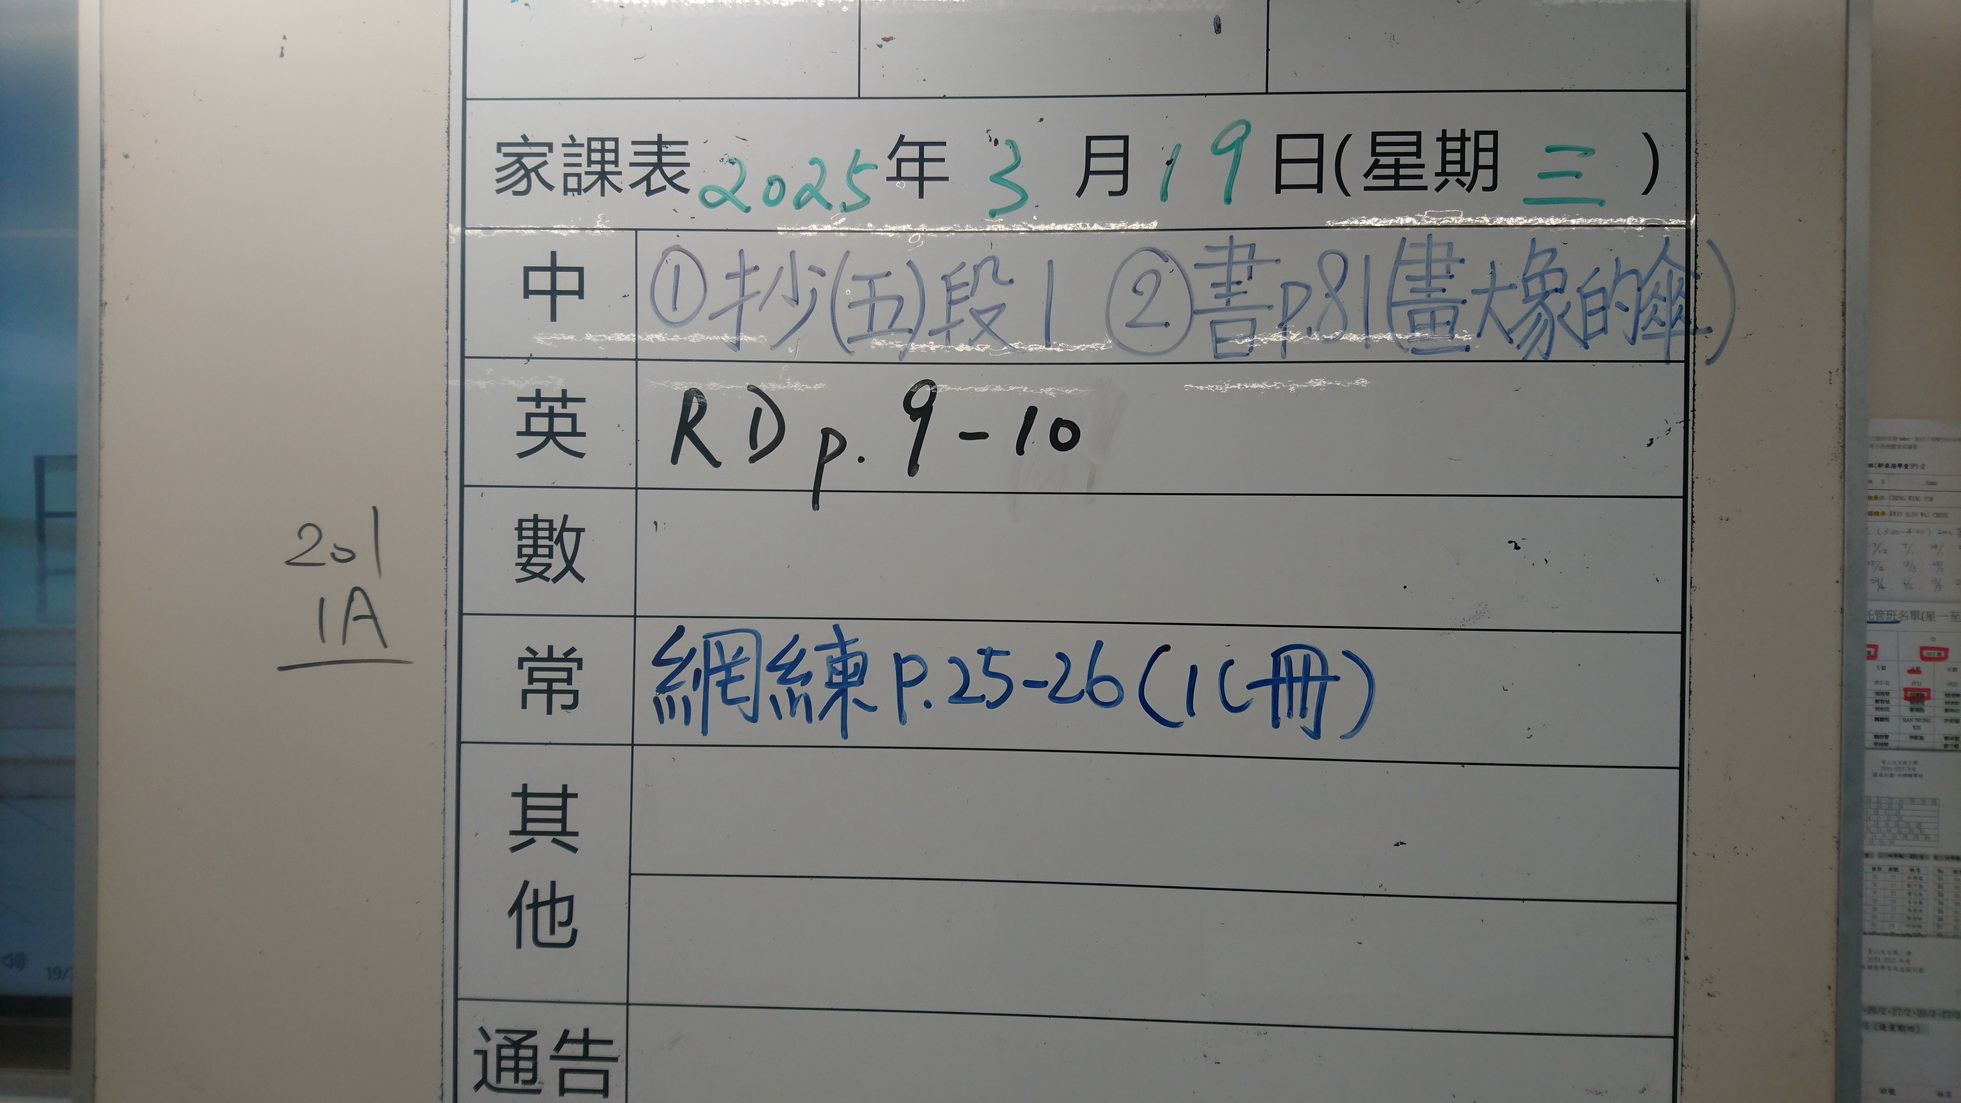 家課表 2025年 3月19日(星期三)
中 ①抄(五)段1 ②書p.81(畫大象的傘)
英 RD p. 9-10
數
201
1A
常 網練 p.25-26(1C冊)
其他
通告
19/3